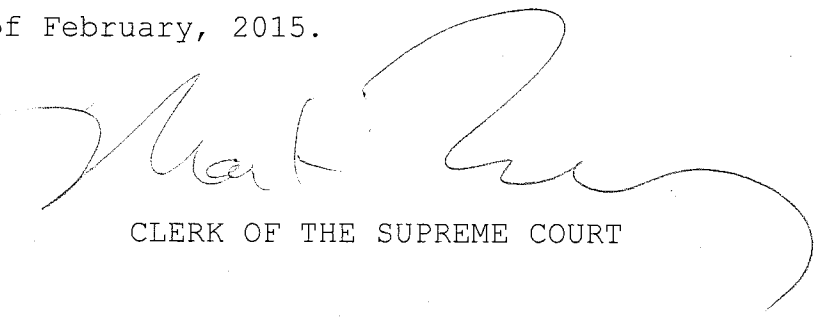 of February, 2015.
Mark
CLERK OF THE SUPREME COURT